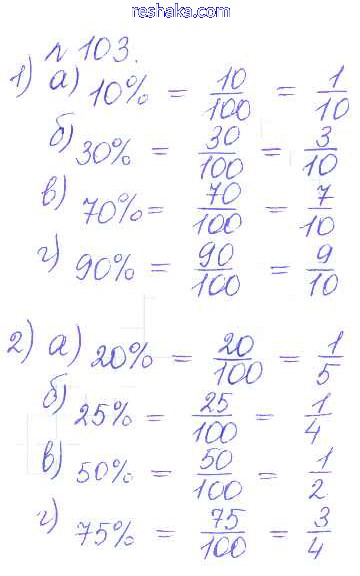 reshaka.com
№ 103.
1) а) 10% = 10/100 = 1/10
б) 30% = 30/100 = 3/10
в) 70% = 70/100 = 7/10
г) 90% = 90/100 = 9/10
2) а) 20% = 20/100 = 1/5
б) 25% = 25/100 = 1/4
в) 50% = 50/100 = 1/2
г) 75% = 75/100 = 3/4